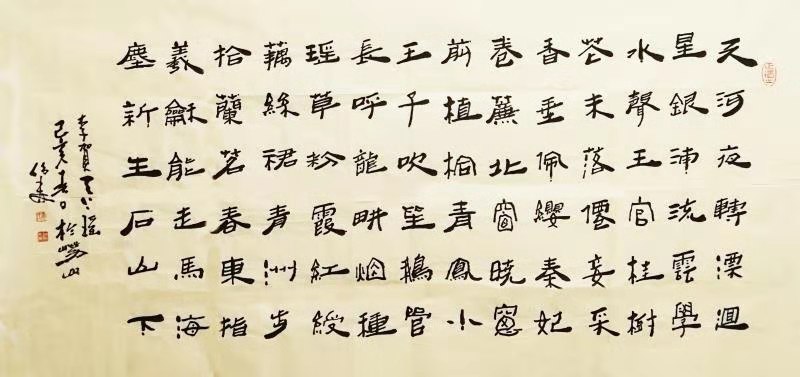 天河夜轉漂迴
星銀浦流雲學
水聲王官桂樹
花未落僊妾采
香垂佩纓秦妃
卷簾北窗曉窻
前植桐青鳳小
王子吹笙鵝管
長呼龍畊烟種
瑶草粉霞紅綬
藕絲裙青洲步
拾蘭苕春東指
羲龢能走馬海
塵新生石山下
李賀天上謠
己亥春日於嶗山